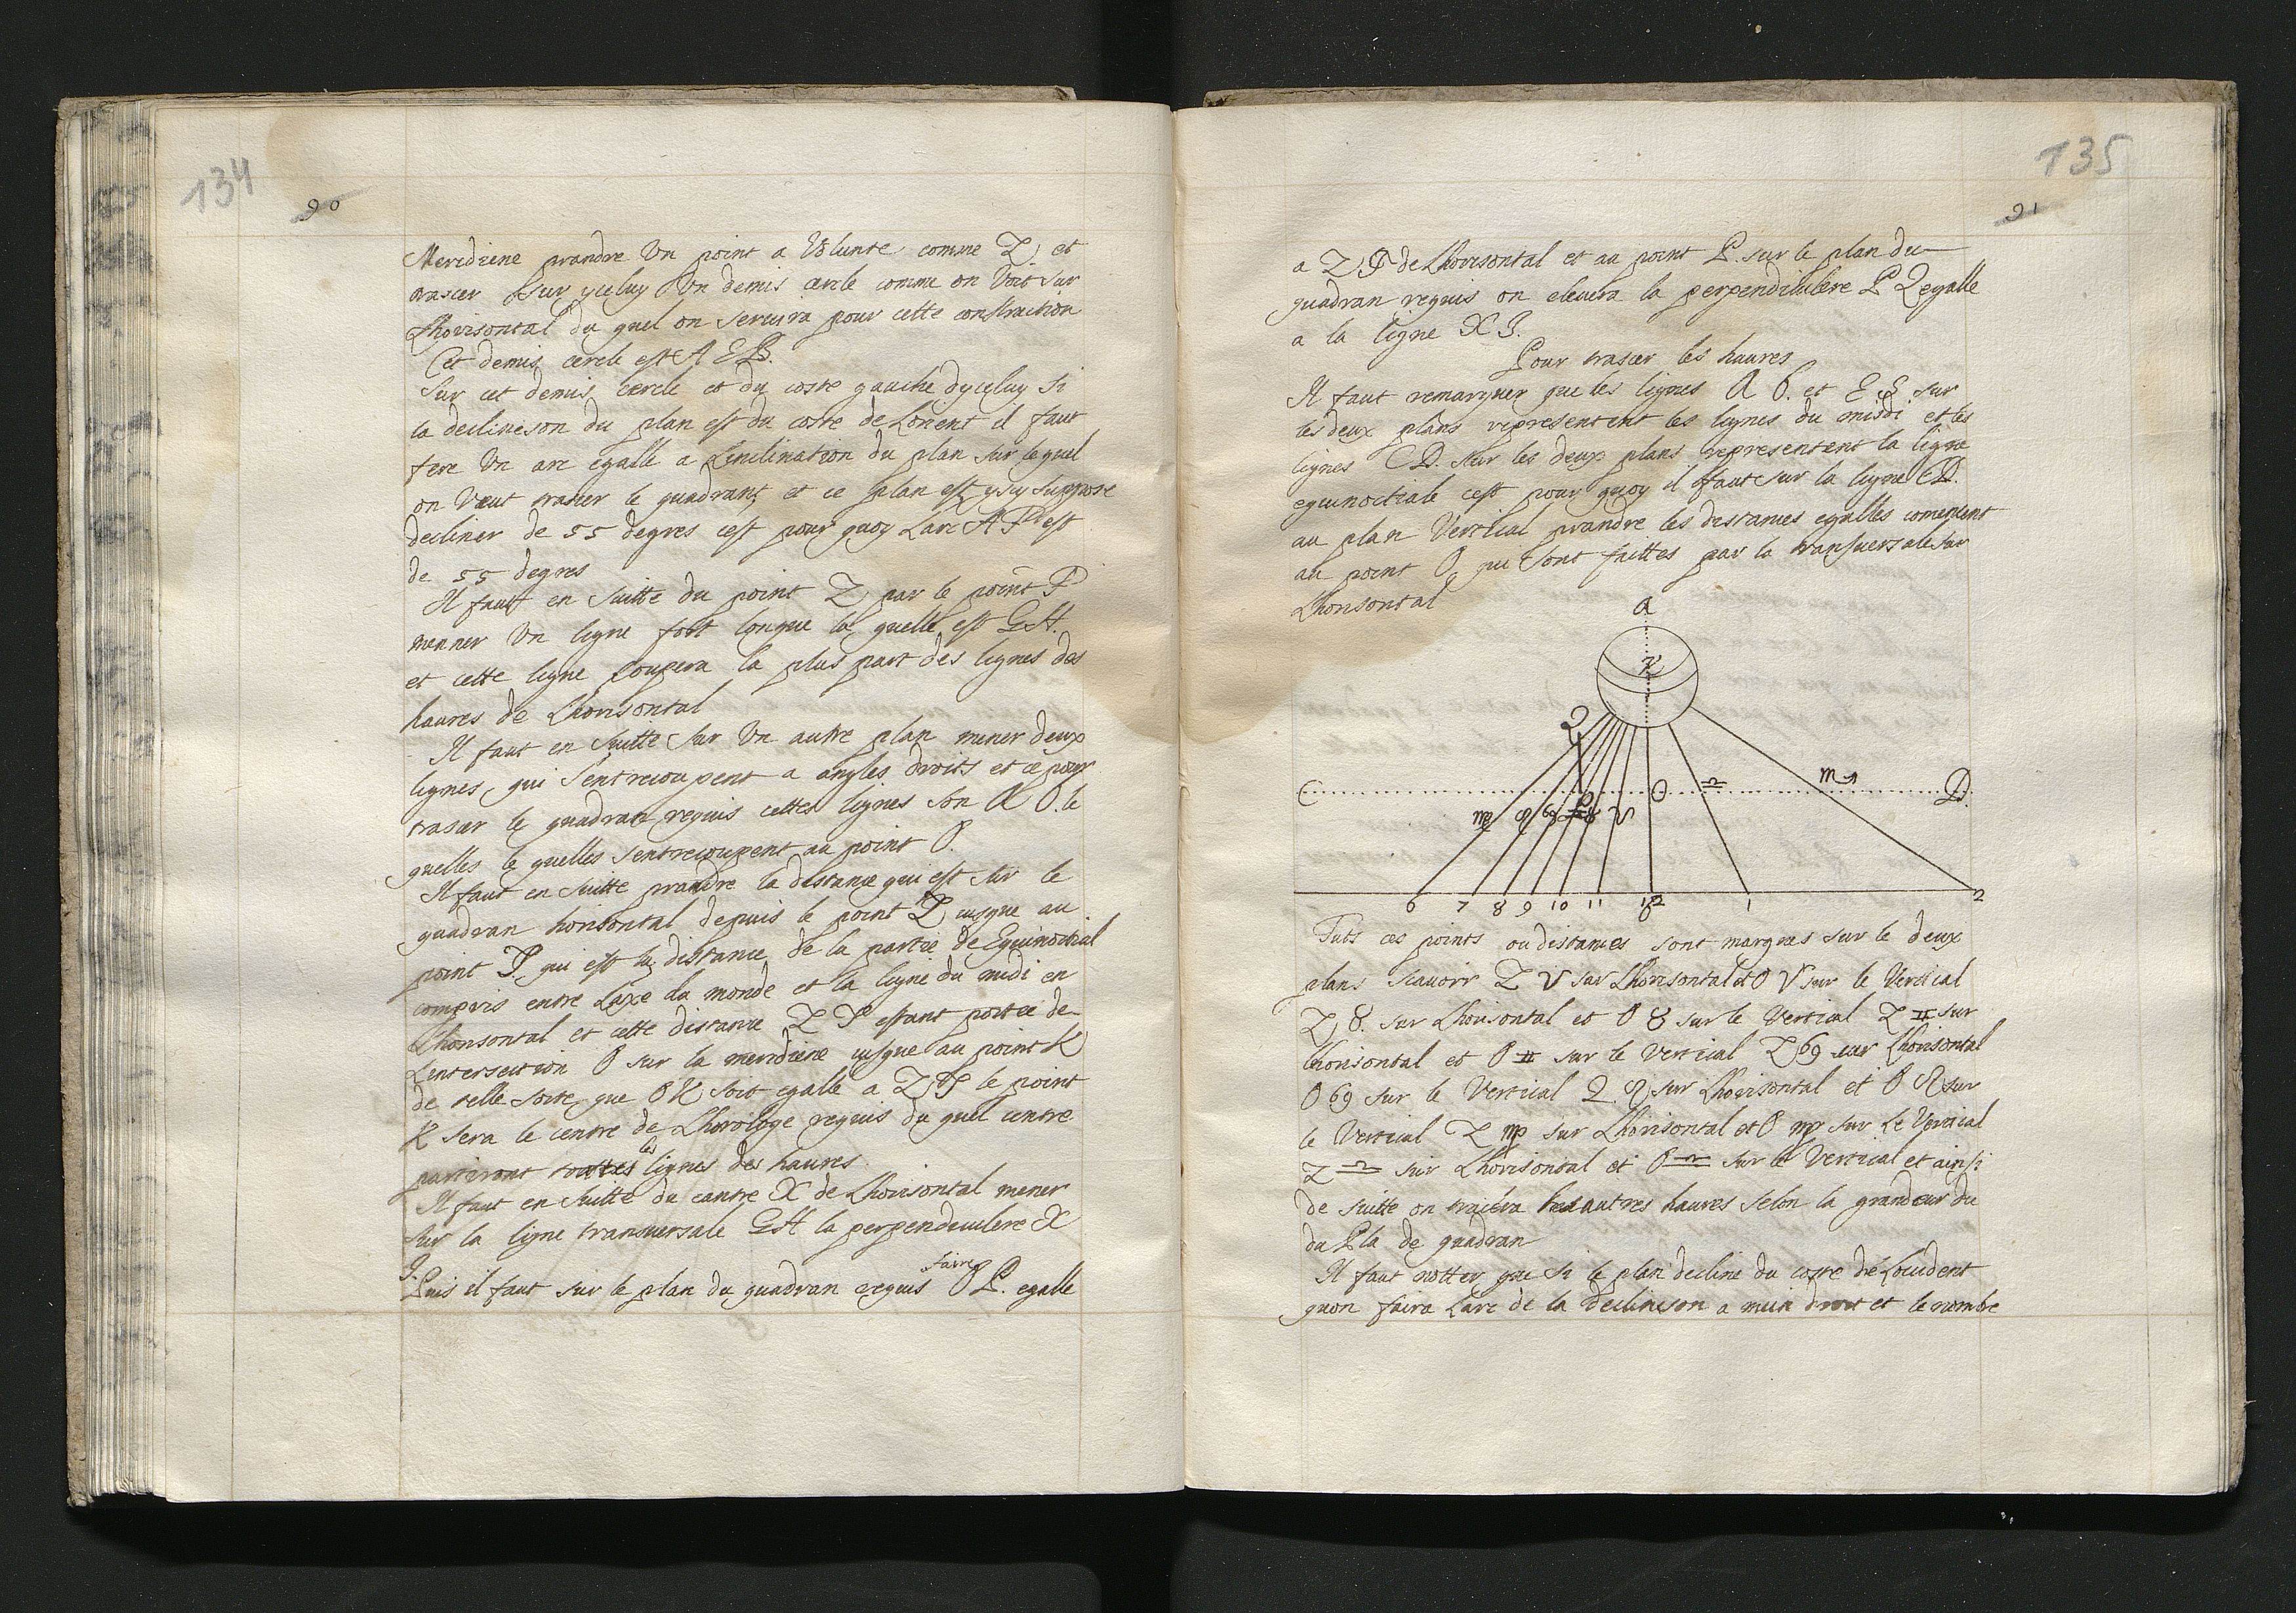 134
90
Meridiene prandre Un point a Volunte comme Z. et
trascer sur yceluy Un demis cercle comme on Voit sur
Lhorisontal du quel on servira pour cette construction
Cet demis cercle est A E B.
Sur cet demis Cercle et du coste gauche dyceluy si
la declineson du plan est du coste de Lorient il faut
fere Un arc egalle a Linclination du plan sur lequel
on Veut trascer le quadrant et ce plan est ysy suppose
decliner de 55 degres cest pour quoy Larc A P est
de 55 degres
Il faut en suitte du point Z par le point P
menner Un ligne fort longue la quelle est G H.
et cette ligne coupera la plus part des lignes des
haures de Lhorisontal
Il faut en suitte sur Un autre plan mener deux
lignes qui sentrecoupent a angles droits et ce pour
trascer le quadran requis cettes lignes son A O. le
quelles le quelles sentrecoupent au point O.
Il faut en suitte prandre la distance qui est sur le
quadran horisontal depuis le point Z jusque au
point P. qui est la distance de la partie de Equinoctial
compris entre Laxe du monde et la ligne du midi en
Lhorisontal et cette distance Z P estant portee de
Lintersection O sur la meridiene jusque au point K
de telle sorte que O K soit egalle a Z P le point
K sera le centre de Lhorologe requis du quel centre
les
partiront touttes lignes des haures
Il faut en suitte du cantre X de Lhorisontal mener
sur la ligne transversale G H la perpendeculere X
I.
faire
Puis il faut sur le plan du quadran requis O P. egalle
135
91
a Z P de Lhorisontal et au point P. sur le plan du
quadran requis on elevera la perpendiculere P Q egalle
a la ligne X I.
Pour trascer les haures
Il faut remarquer que les lignes A O. et E S sur
les deux plans representent les lignes du midi et les
lignes C D. sur les deux plans representent la ligne
equinoctiale cest pour quoy il faut sur la ligne C D.
au plan Vertical prandre les distances egalles comencent
au point O qui sont faittes par la transversale sur
Lhorisontal
a
K
Q
C
O
♎
m
D.
♍ ♌ 69 P ♉ ♈
6 7 8 9 10 11 12 1 2
Tuts ces points ou distances sont marques sur le deux
plans scauoir Z ♈ sur Lhorisontal et O ♈ sur le Vertical
Z ♉. sur Lhorisontal et O ♉ sur le Vertical Z ♊ sur
Lhorisontal et O ♊ sur le Vertical Z 69 sur Lhorisontal
O 69 sur le Vertical Z. ♌ sur Lhorisontal et O ♌ sur
le Vertical Z ♍ sur Lhorisontal et O ♍ sur le Vertical
Z ♎ sur Lhorisontal et O ♎ sur le Vertical et ainsi
de suitte on traicera les autres haures selon la grandeur du
du Pla de quadran
Il faut notter que si le plan decline du coste de Loccident
quon faira Larc de la declineson a main droit et le nombre